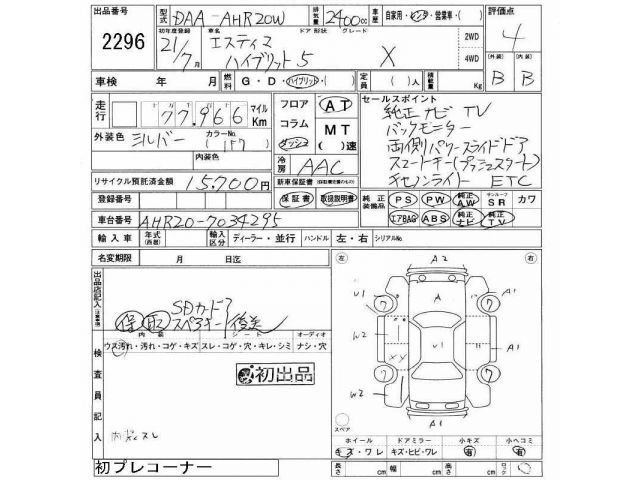 出品番号 2296
型式 DAA-AHR20W 排気量 2400cc 車歴 自家用・レンタ・営業車・( ) 評価点 4
初年度登録 21/7月 車名 エスティマ ハイブリッド ドア 形状 5 グレード X 2WD 4WD (外装) B (内装) B
車検 年 月 燃料 G・D・ハイブリット・( ) 定員 ( )人 積載量 Kg
走行 77,966 マイル Km
外装色 シルバー カラーNo. 1F7
内装色
フロア コラム ダッシュ AT MT ( )速
冷房 AAC
セールスポイント
純正ナビ TV
バックモニター
両側パワースライドドア
スマートキー(プッシュスタート)
ETC
リサイクル預託済金額 15,700円
新車保証書 保証書 取扱説明書
登録番号
純正装備品 PS PW 純正AW サンルーフ SR カワ
エアBAG ABS 純正ナビ 純正TV
車台番号 AHR20-7034295
輸入車 年式(西暦) 輸入区分 ディーラー・並行 ハンドル 左・右 シリアルNo.
名変期限 月 日迄
左 右
出品店記入
SDカード
保 取 スペアキー
内装 シート オーディオ
ウス汚れ・汚れ・コゲ・キズ スレ・コゲ・穴・キレ・シミ ナシ・穴
検査員記入
初出品
内装スレ
A2
V1 A A1
7 7
W2 V1 A1
XY
7 7
W2
A1
スペア
ホイール ドアミラー 小キズ 小ヘコミ
キズ・ワレ キズ・ヒビ・ワレ 有 有
初プレコーナー
長さ cm 幅 cm 高さ cm